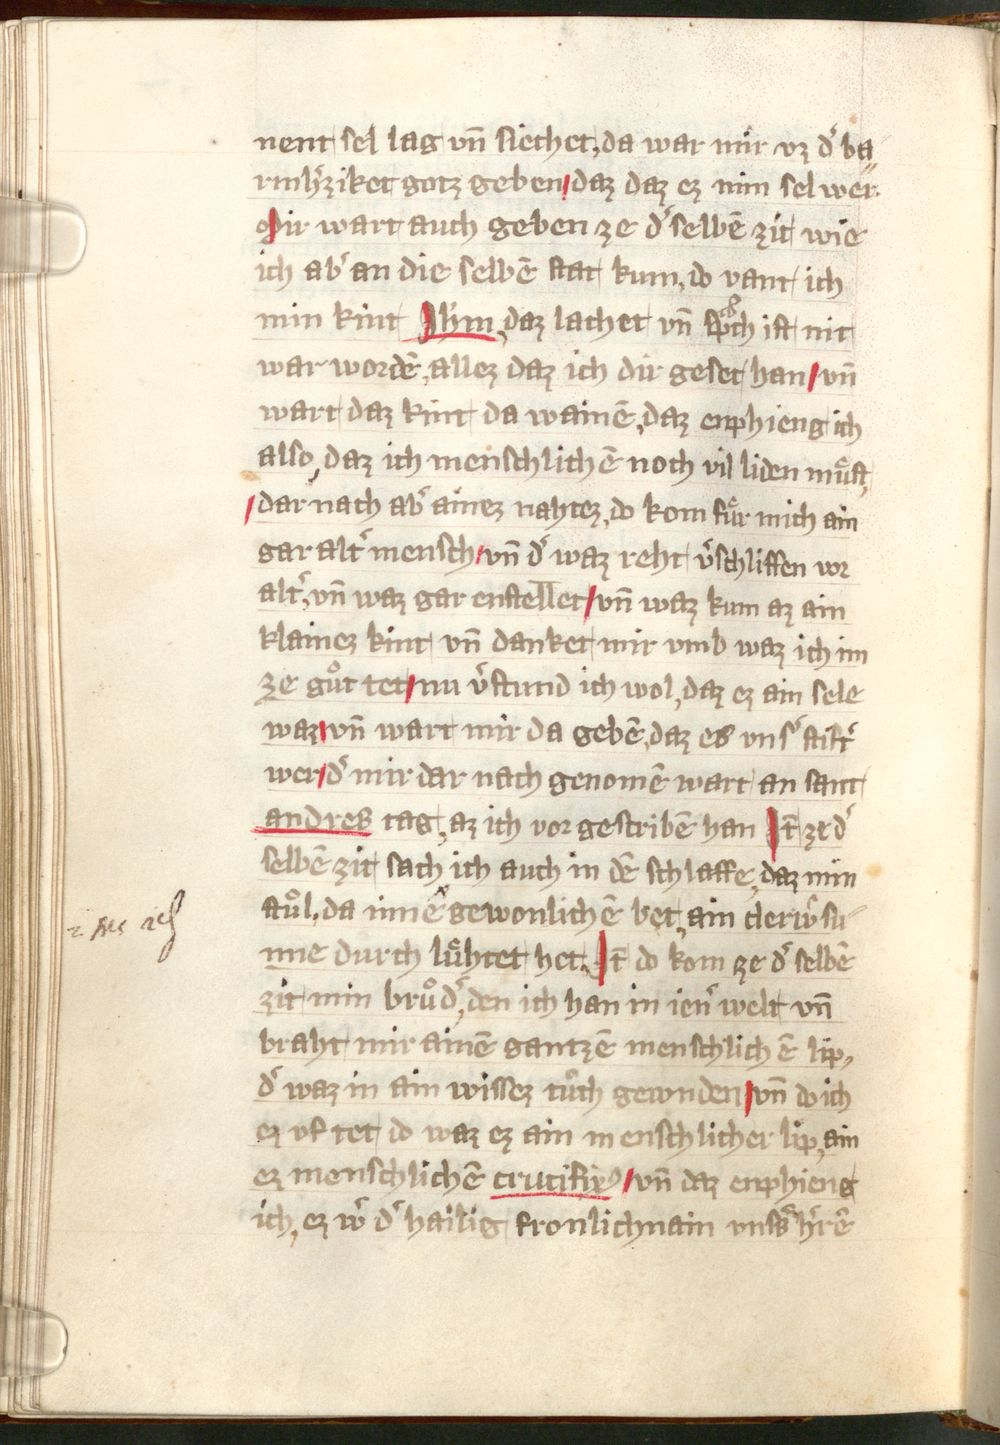 nent sel lag vn̄ siechet, da war mir vz dˀ ba
rmhˀziket gotz geben, daz daz ez min sel wer.
Mir wart auch geben ze dˀ selbē zit wie
ich abˀ an die selbē stat kum, do vant ich
min kint Jhm, daz lachet vn̄ sp͛ch ist nit
war wordē, allez daz ich dir geset han, vn̄
wart daz kint da wainē, daz enphieng ich
also, daz ich menschlichē noch vil liden muͤst,
dar nach abˀ ainez nahtez, do kom fuͤr mich ain
gar altˀ mensch, vn̄ dˀ waz reht vˀschliffen vor
altˀ, vn̄ waz gar enstellet, vn̄ waz kum az ain
klainez kint vn̄ danket mir vmb waz ich im
ze guͦt tet, nu vˀstund ich wol, daz ez ain sele
waz, vn̄ wart mir da gebē, daz es vnsˀ stiftˀ
wer, dˀ mir dar nach genomē wart an sant
andres tag, az ich vor gescribē han Jt̄ ze dˀ
selbē zit sach ich auch in dē schlaffe, daz min
stuͦl, da inne gewonlichē bet, ain clerw̄ su
nne durch luͤhtet het, Jt̄ do kom ze dˀ selbē
zit min bruͦdˀ, den ich han in ienˀ welt vn̄
braht mir ainē gantzē menschlichē lip,
dˀ waz in ain wissez tuͦch gewnden, vn̄ do ich
ez vf tet do waz ez ain menschlicher lip, ain
ez menschlichē crucifix9, vn̄ daz enphieng
ich, ez wˀ dˀ hailig fronlichnam vnsˀs hˀrē